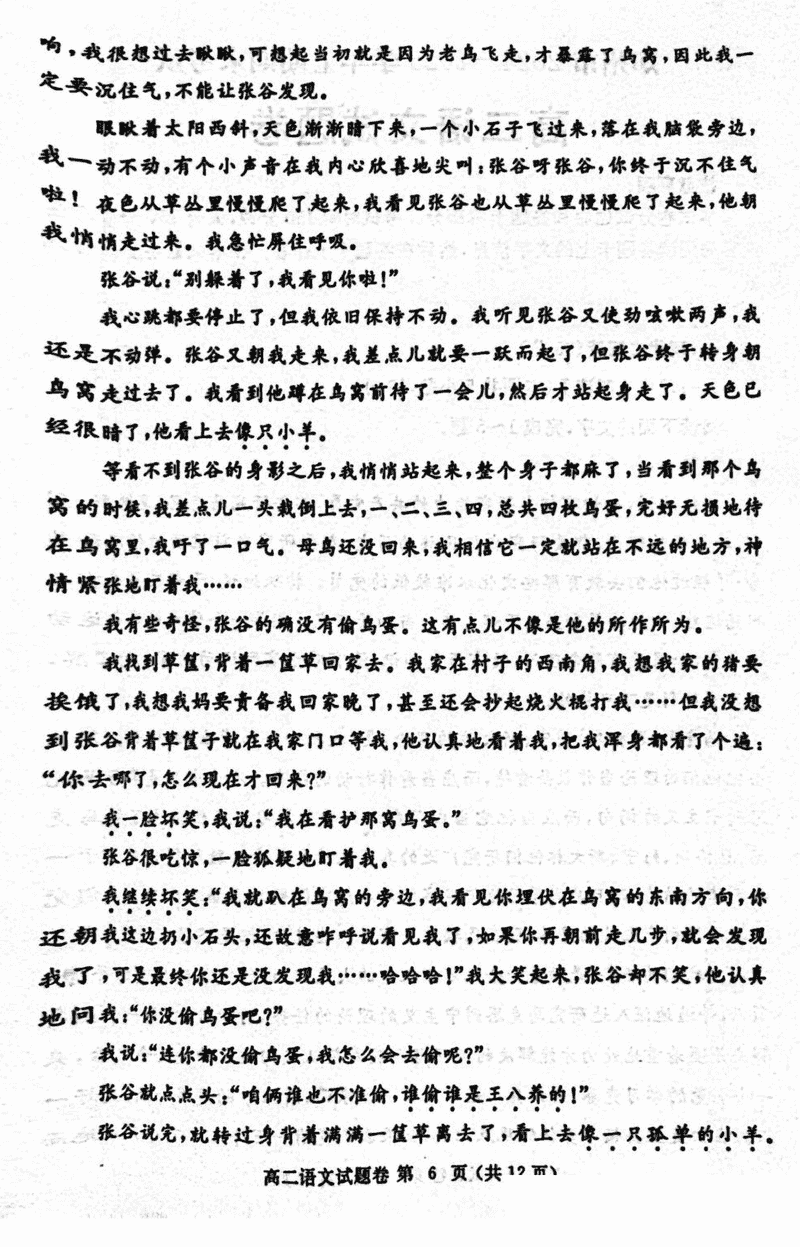 响，我很想过去瞅瞅，可想起当初就是因为老鸟飞走，才暴露了鸟窝，因此我一
定要沉住气，不能让张谷发现。
眼瞅着太阳西斜，天色渐渐暗下来，一个小石子飞过来，落在我脑袋旁边，
我一动不动，有个小声音在我内心欣喜地尖叫：张谷呀张谷，你终于沉不住气
啦！夜色从草丛里慢慢爬了起来，我看见张谷也从草丛里慢慢爬了起来，他朝
我悄悄走过来。我急忙屏住呼吸。
张谷说：“别躲着了，我看见你啦！”
我心跳都要停止了，但我依旧保持不动。我听见张谷又使劲咳嗽两声，我
还是不动弹。张谷又朝我走来，我差点儿就要一跃而起了，但张谷终于转身朝
鸟窝走过去了。我看到他蹲在鸟窝前待了一会儿，然后才站起身走了。天色已
经很暗了，他看上去像只小羊。
等看不到张谷的身影之后，我悄悄站起来，整个身子都麻了，当看到那个鸟
窝的时候，我差点儿一头栽倒上去，一、二、三、四，总共四枚鸟蛋，完好无损地待
在鸟窝里，我吁了一口气。母鸟还没回来，我相信它一定就站在不远的地方，神
情紧张地盯着我……
我有些奇怪，张谷的确没有偷鸟蛋。这有点儿不像是他的所作所为。
我找到草筐，背着一筐草回家去。我家在村子的西南角，我想我家的猪要
挨饿了，我想我妈要责备我回家晚了，甚至还会抄起烧火棍打我……但我没想
到张谷背着草筐子就在我家门口等我，他认真地看着我，把我浑身都看了个遍：
“你去哪了，怎么现在才回来？”
我一脸坏笑，我说：“我在看护那窝鸟蛋。”
张谷很吃惊，一脸狐疑地盯着我。
我继续坏笑：“我就趴在鸟窝的旁边，我看见你埋伏在鸟窝的东南方向，你
还朝我这边扔小石头，还故意咋呼说看见我了，如果你再朝前走几步，就会发现
我了，可是最终你还是没发现我……哈哈哈！”我大笑起来，张谷却不笑，他认真
地问我：“你没偷鸟蛋吧？”
我说：“连你都没偷鸟蛋，我怎么会去偷呢？”
张谷就点点头：“咱俩谁也不准偷，谁偷谁是王八养的！”
张谷说完，就转过身背着满满一筐草离去了，看上去像一只孤单的小羊。
高二语文试题卷 第 6 页（共 12 页）